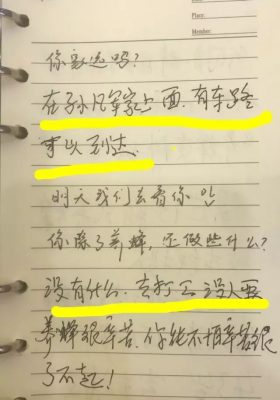 Place:
Member:
你家远吗?
在孙凡军家上面.有车路
可以到达.
明天我们去看你
你除了养蜂,还做些什么?
没有什么.去打工没人要
养蜂很辛苦.你能不怕辛苦很
了不起!